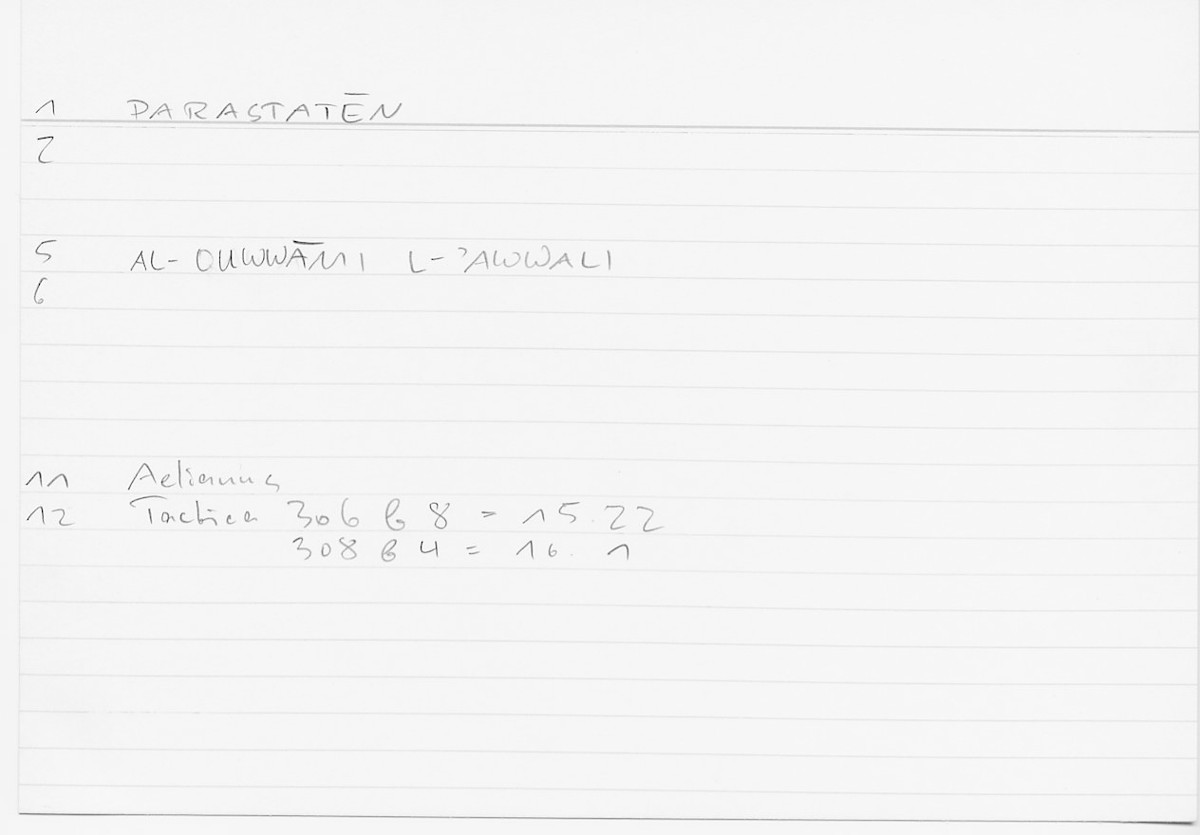 1 PARASTATĒN
2
5 AL-QUWWĀMI L-ʾAWWALI
6
11 Aelianus
12 Tactica 306 b 8 = 15.22
308 b 4 = 16.1